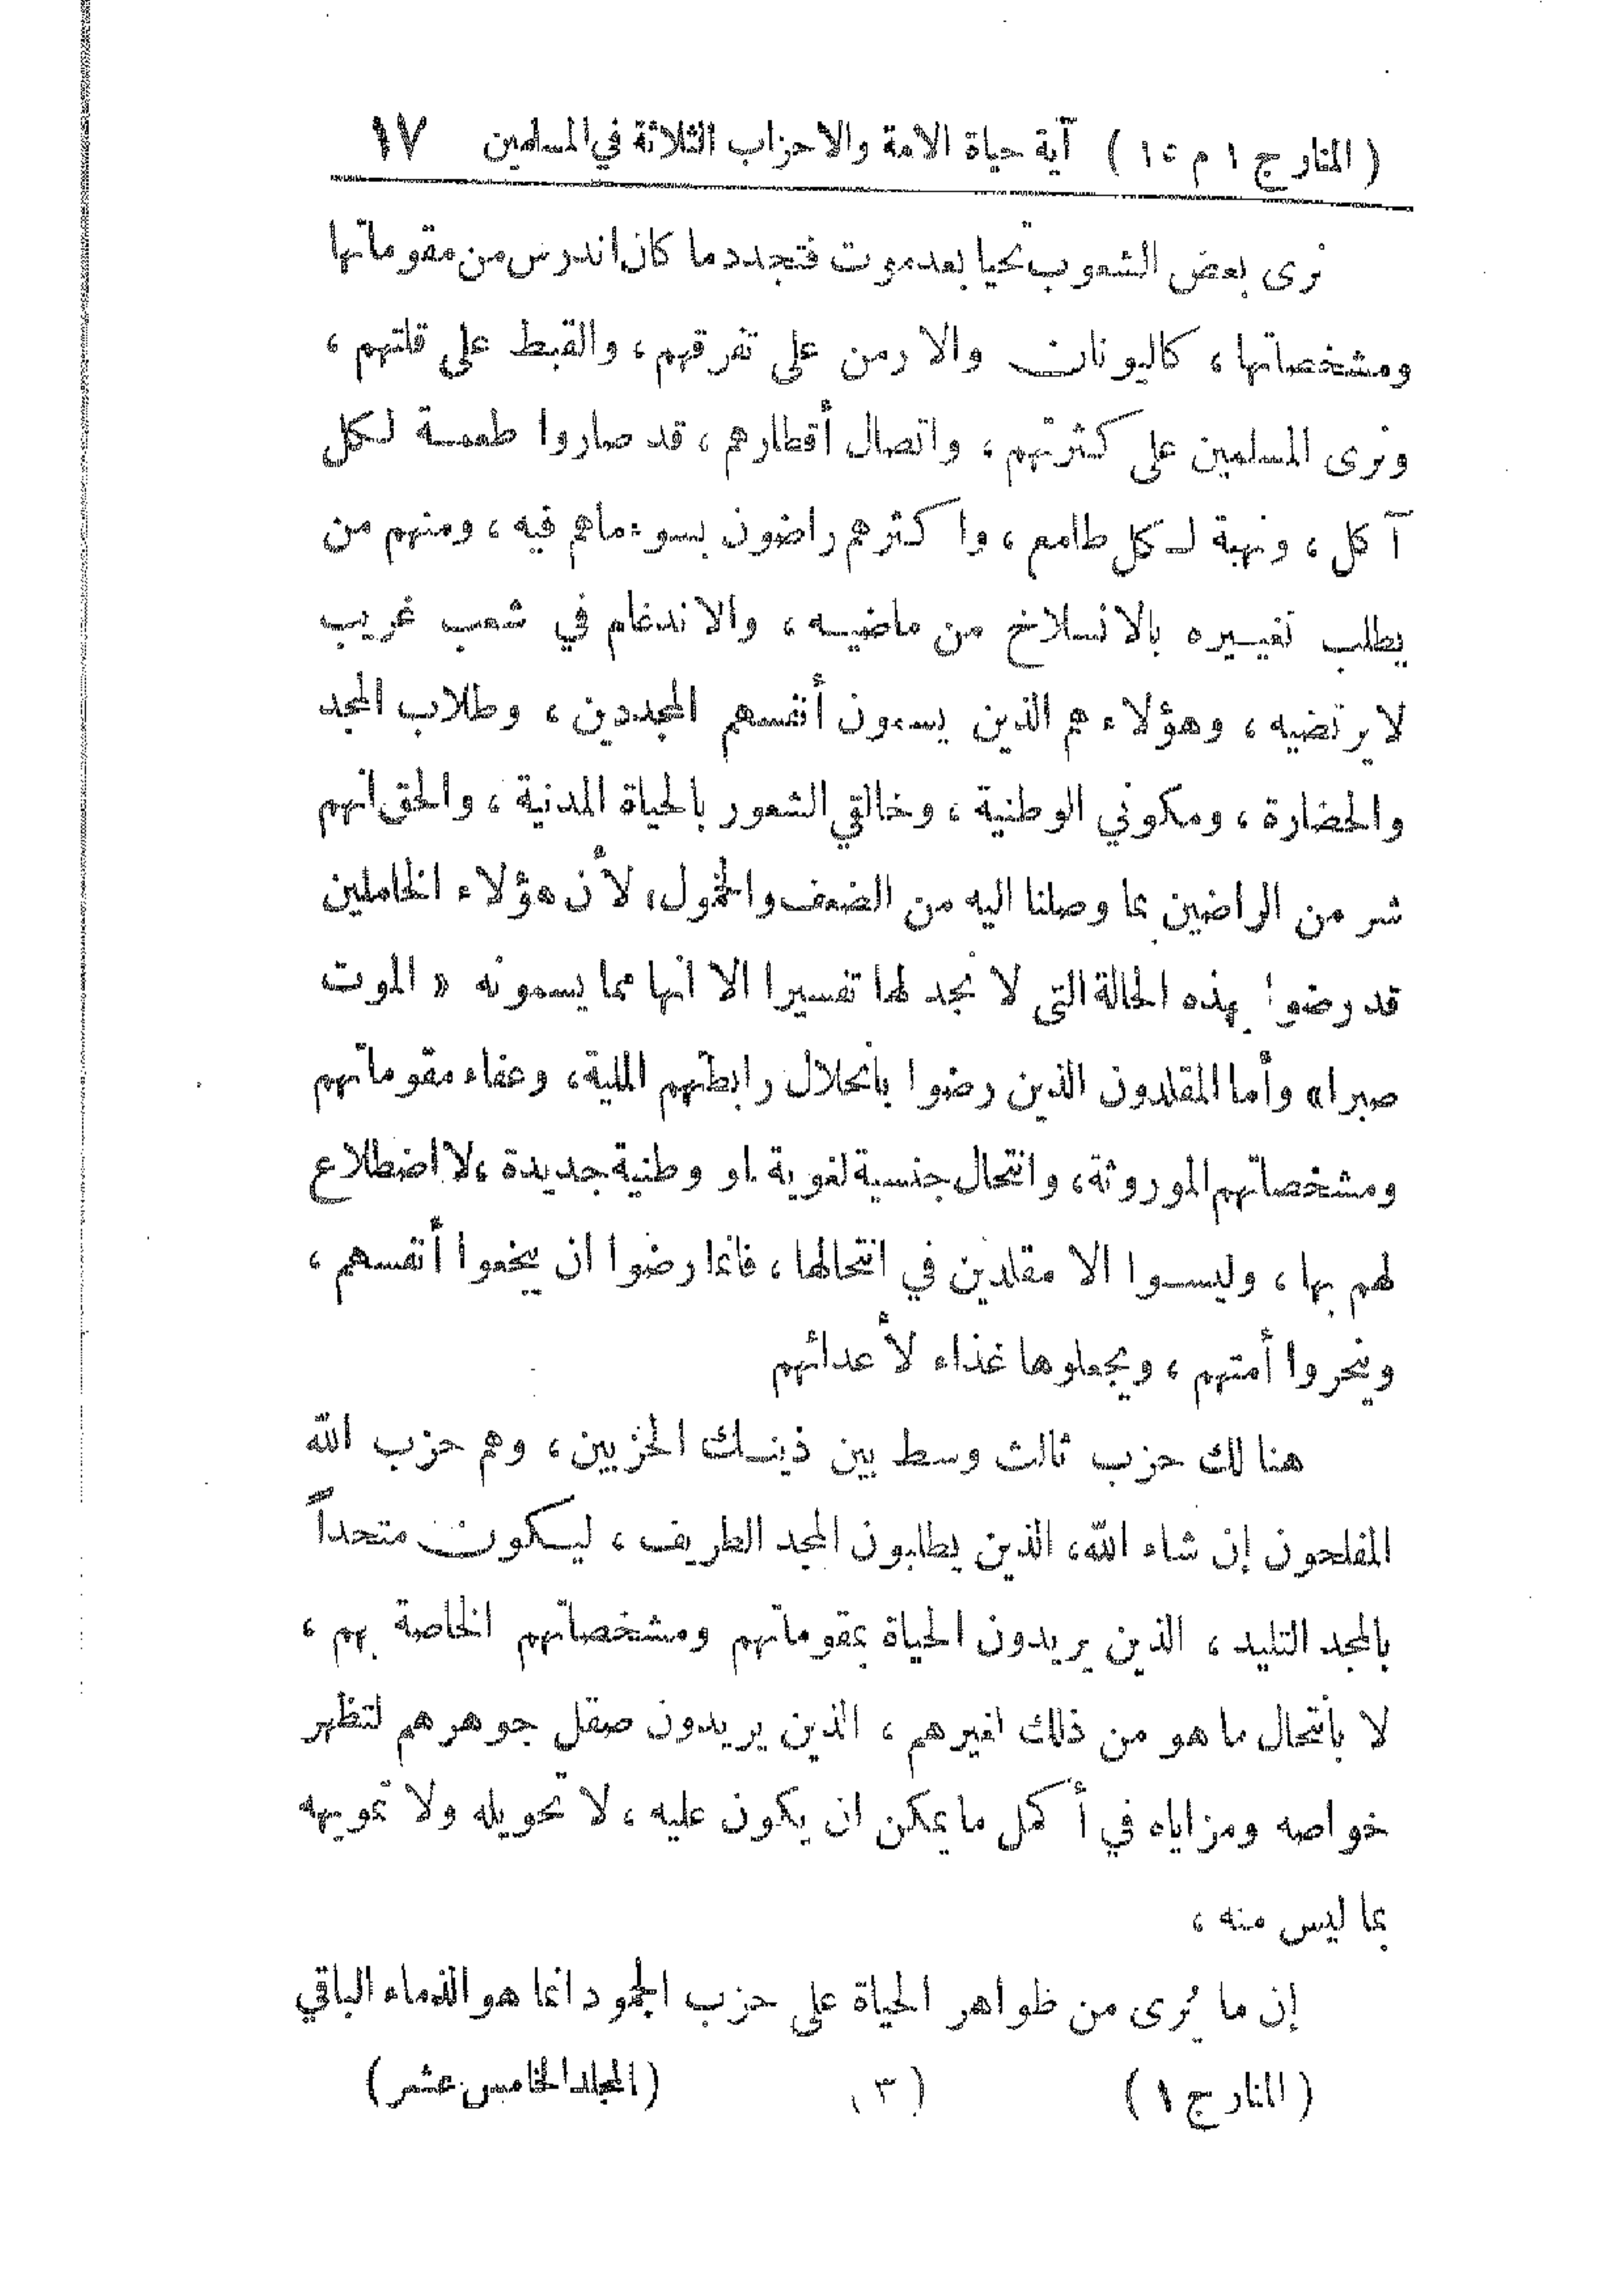 (المنار ج ١ م ١٥) آية حياة الامة والاحزاب الثلاثة في المسلمين ١٧
نرى بعض الشعوب تحيا بعد موت فتجدد ما كان اندرس من مقوماتها
ومشخصاتها، كاليونان والارمن على تفرقهم، والقبط على قلتهم،
ونرى المسلمين على كثرتهم، واتصال أقطارهم، قد صاروا طعمة لكل
آكل، ونهبة لكل طامع، واكثرهم راضون بسوء ماهم فيه، ومنهم من
يطلب تغييره بالانسلاخ من ماضيه، والاندغام في شعب غريب
لا يرتضيه، وهؤلاء هم الذين يسمون أنفسهم المجددين، وطلاب المجد
والحضارة، ومكوني الوطنية، وخالقي الشعور بالحياة المدنية، والحق انهم
شر من الراضين بما وصلنا اليه من الضعف والخمول، لأن هؤلاء الخاملين
قد رضوا بهذه الحالة التي لا نجد لها تفسيرا الا انها مما يسمونه «الموت
صبرا» وأما المقلدون الذين رضوا بانحلال رابطتهم الملية، وعفاء مقوماتهم
ومشخصاتهم الموروثة، وانتحال جنسية لغوية او وطنية جديدة، لا اضطلاع
لهم بها، وليسوا الا مقلدين في انتحالها، فانما رضوا ان يبخعوا أنفسهم،
وينحروا أمتهم، ويجعلوها غذاء لأعدائهم
هنالك حزب ثالث وسط بين ذينك الحزبين، وهم حزب الله
المفلحون إن شاء الله، الذين يطلبون المجد الطريف، ليكون متحداً
بالمجد التليد، الذين يريدون الحياة بمقوماتهم ومشخصاتهم الخاصة بهم،
لا بانتحال ما هو من ذلك لغيرهم، الذين يريدون صقل جوهرهم لتظهر
خواصه ومزاياه في أكمل ما يمكن ان يكون عليه، لا تحويله ولا تمويهه
بما ليس منه،
إن ما يُرى من ظواهر الحياة على حزب الجمود انما هو الذماء الباقي
(المنار ج ١) (٣) (المجلد الخامس عشر)